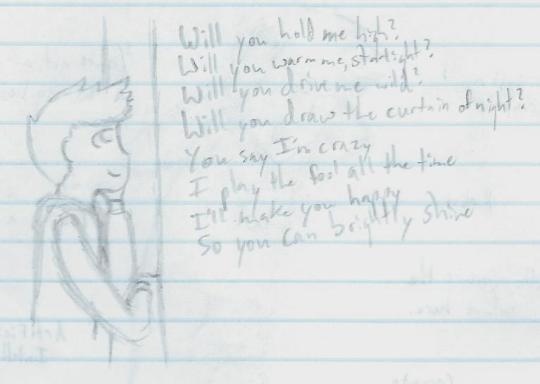 Will you hold me high?
Will you warm me, starlight?
Will you drive me wild?
Will you draw the curtain of night?
You say I'm crazy
I play the fool all the time
I'll make you happy
So you can brightly shine